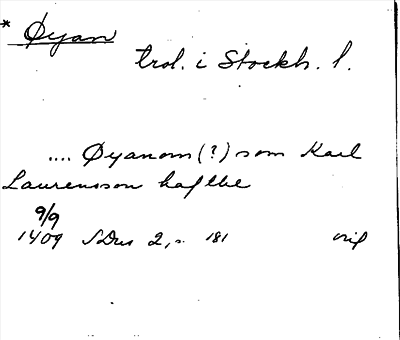 * Øyan
trol. i Stockh. l.
.... Øyanom (?) som Karl
Laurensson hafdhe
9/9
1409 SDns 2, s. 181 orig